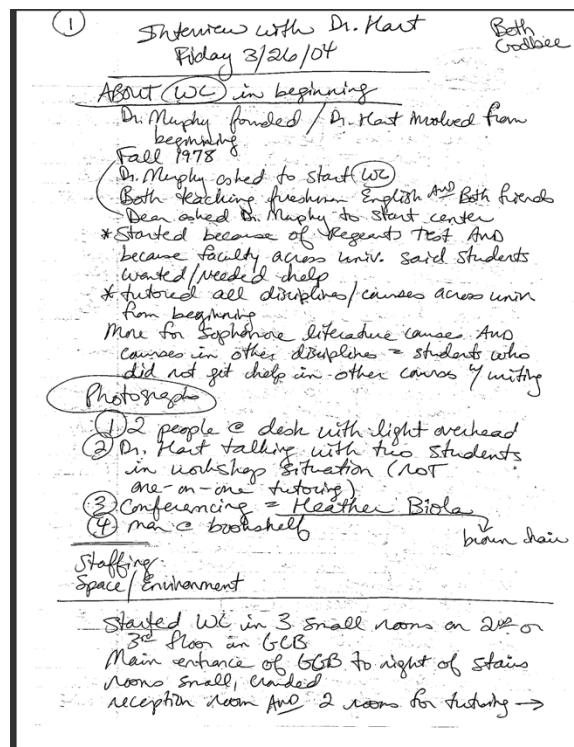 1
Interview with Dr. Hart
Friday 3/26/04
Beth
Godbee
ABOUT WC in beginning
Dr. Murphy founded / Dr. Hart involved from
beginning
Fall 1978
Dr. Murphy asked to start WC
Both teaching freshman English AND Both friends
Dean asked Dr. Murphy to start center
* Started because of Regents Test AND
because faculty across univ. said students
wanted/needed help
* tutored all disciplines/courses across univ
from beginning
More for Sophomore literature courses AND
courses in other disciplines = students who
did not get help in other courses w/ writing
Photographs
1 2 people @ desk with light overhead
2 Dr. Hart talking with two students
in workshop situation (not
one-on-one tutoring)
3 Conferencing = Heather Biola
4 man @ bookshelf
brown chair
Staffing
Space/Environment
Started WC in 3 small rooms on 2nd or
3rd floor in GCB
Main entrance of GCB to right of stairs
rooms small, crowded
reception room AND 2 rooms for tutoring →